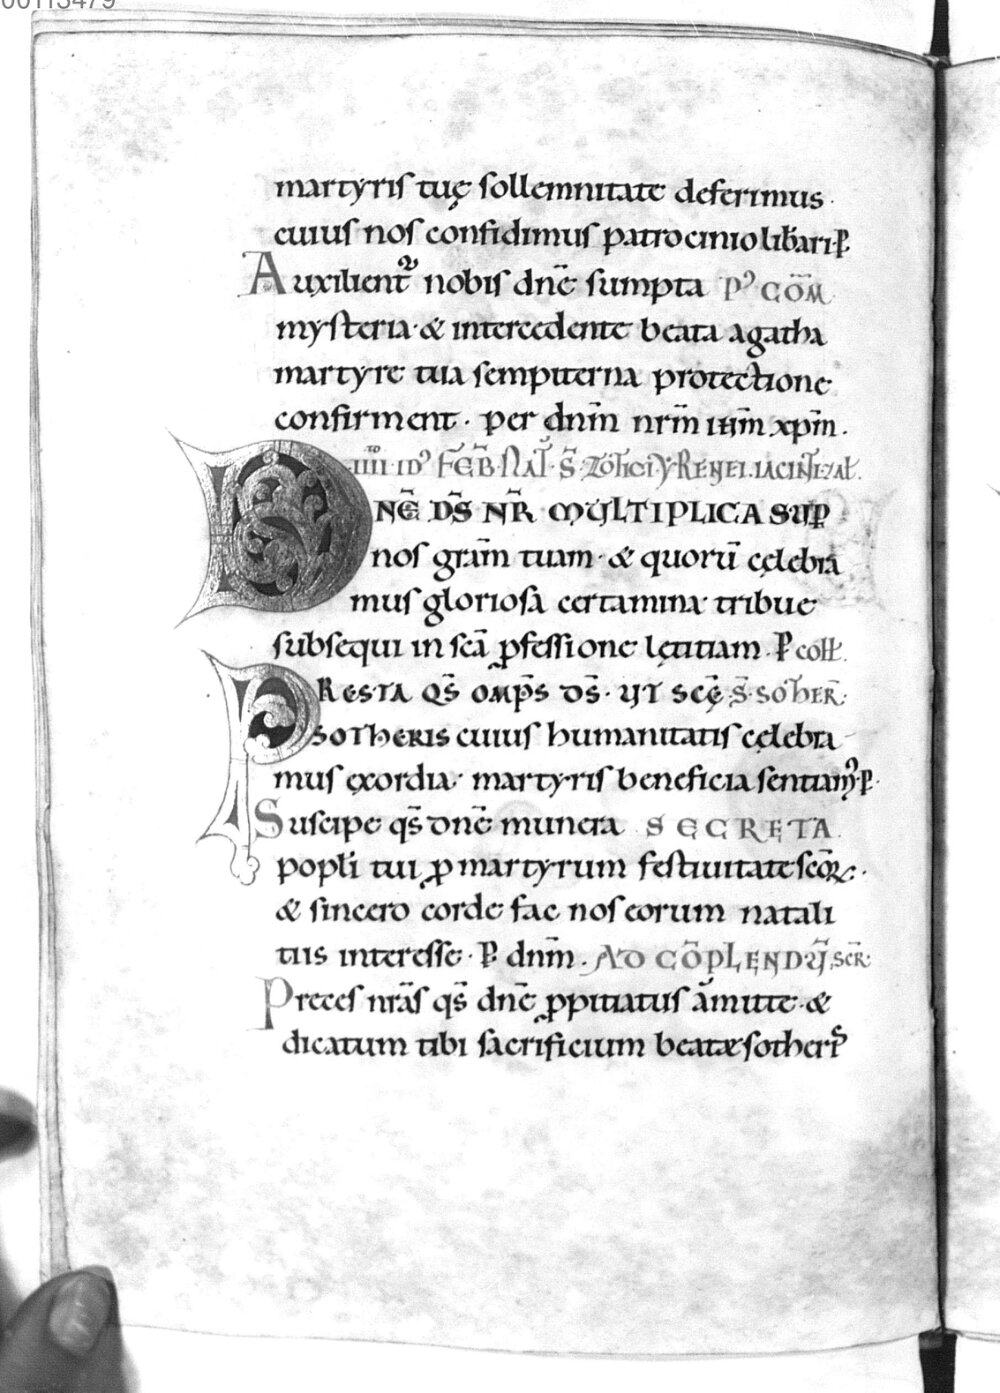 00113479
martyris tuę sollemnitate deferimus ·
cuius nos confidimus patrocinio lib̄ari · P̱.
Auxilient᷑ nobis dn̄e sumpta P᾿ COM̄
mysteria · & intercedente beata agatha
martyre tua sempiterna protectione
confirment · per dnm̄ nrm̄ ihm̄ xpm̄ .
IIII ID᾿ FEB̄ · NAT̄ · S̄ · ZOTICI
DN̄E DS̄ NR̄ MULTIPLICA SUP̱
nos grām tuam · & quorū celebra
mus gloriosa certamina · tribue
subsequi in scā ꝓfessione lętitiam · P̱ coll̄.
PRESTA QS̄ OMPS̄ DS̄ · UT SCĘ S̄ · SOTHER̄ ·
SOTHERIS cuius humanitatis cęlebra
mus exordia · martyris beneficia sentiam᾿ · P̱ ·
Suscipe qs̄ dn̄e munera SECRETA
popl̄i tui ꝓ martyrum festiuitate scōꝝ ·
& sincero corde fac nos eorum natali
tiis interesse · P̱ dnm̄ . AD CO̅PLENDU̅
Preces nrās qs̄ dn̄e ꝓpitiatus amitte · &
dicatum tibi sacrificium beatæ sotheris